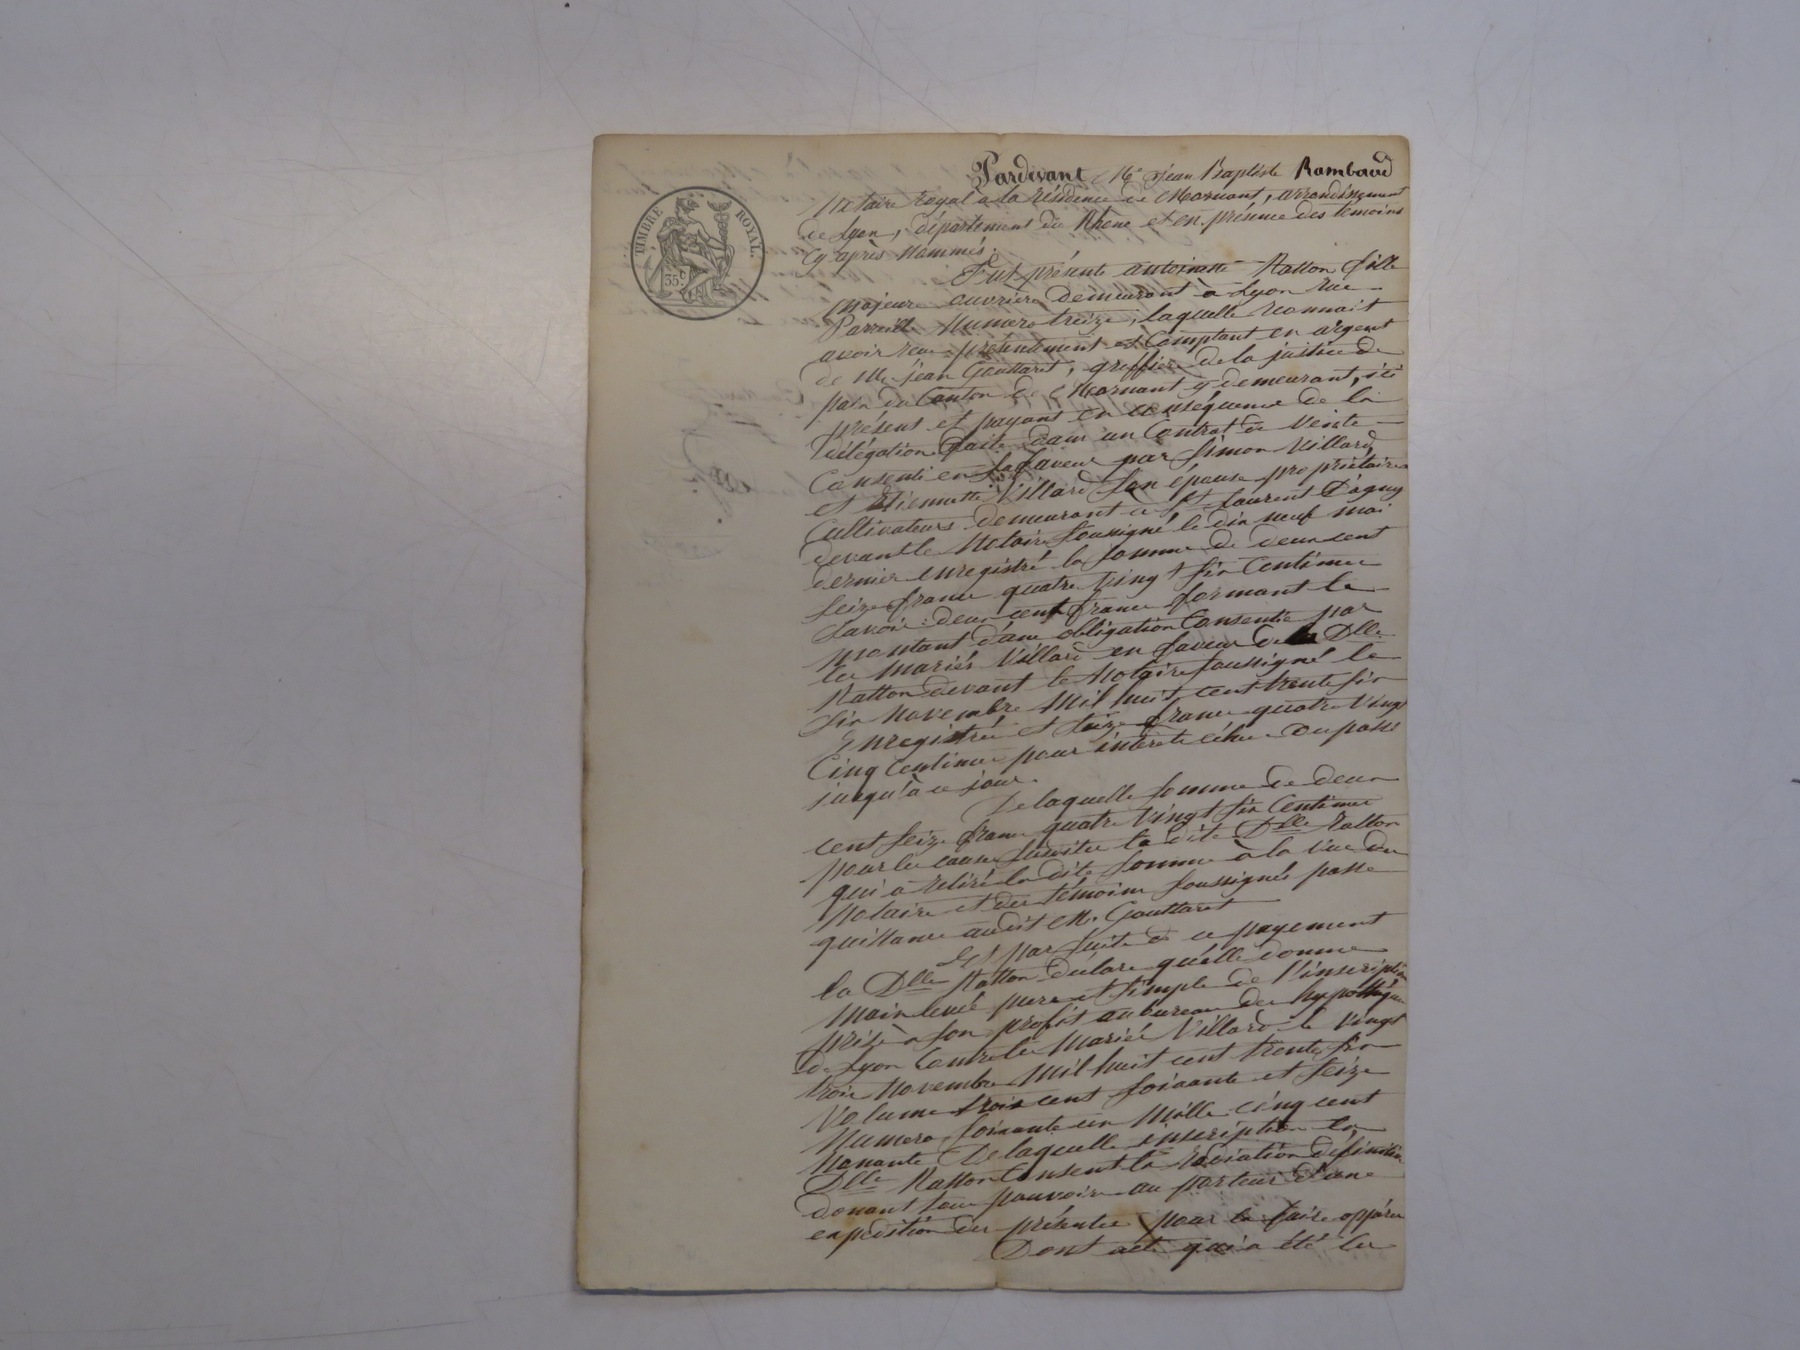 TIMBRE ROYAL.
35 c
Pardevant Me Jean Baptiste Rambaud
Notaire royal à la résidence de Mornant, arrondissement
de Lyon, département du Rhône et en présence des témoins
cy après nommés.
Fut présente antoinette Ratton fille
majeure ouvrière demeurant à Lyon rue
numero treize, laquelle reconnait
avoir reçu présentement et Comptant en argent
de Me jean Gouttaret, greffier de la justice de
paix du Canton de Mornant y demeurant, ici
présent et payant en conséquence de la
délégation faite dans un Contrat de Vente
Consenti en sa faveur par Simon Villard,
et Etiennette Villard son épouse propriétaires
Cultivateurs demeurant à St Laurent D'agny
devant le Notaire soussigné le dix neuf mai
dernier enregistré la somme de deux cent
seize francs quatre vingt six Centimes
savoir: deux cent francs formant le
montant d'une obligation Consentie par
les mariés Villard en faveur de la Dlle
Ratton devant le Notaire soussigné le
six novembre Mil huit cent trente six
Enregistrée et seize francs quatre Vingt
Cinq Centimes pour intérêts échus ou passé
jusqu'à ce jour.
De laquelle somme de deux
cent seize francs quatre Vingt six Centimes
pour les causes susdites la dite Dlle Ratton
qui a retiré la dite somme à la Vue du
Notaire et des témoins soussignés passe
quittance audit M. Gouttaret
Et par suite de ce payement
la Dlle Ratton déclare qu'elle donne
main levée pure et simple de l'inscription
prise à son profit au bureau des hypothèques
de Lyon Contre les Mariés Villard le Vingt
trois Novembre Mil huit cent trente six
Volume trois cent soixante et seize
Numero soixante un Mille cinq cent
Nonante De laquelle inscription la
Dlle Ratton Consent la radiation définitive
donant tous pouvoirs au porteur d'une
expédition des présentes pour la faire oppérer
Dont acte qui a été lu